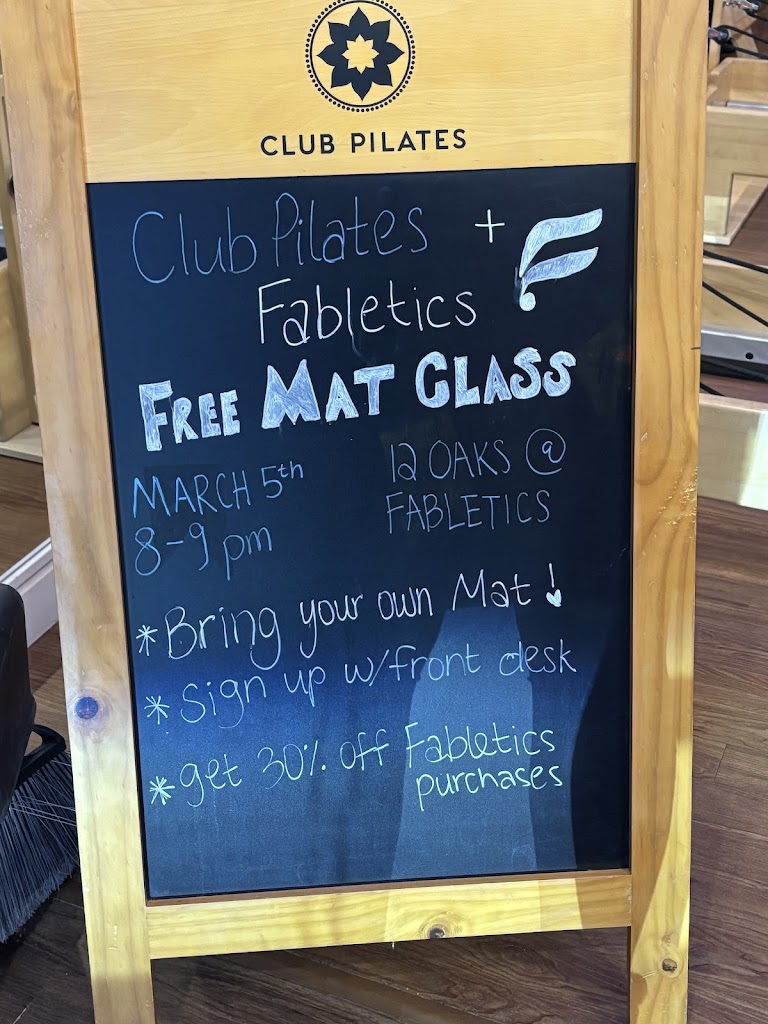 CLUB PILATES
Club Pilates +
Fabletics
FREE MAT CLASS
MARCH 5th
8-9 pm
12 OAKS @
FABLETICS
* Bring your own Mat!
* Sign up w/front desk
* get 30% off Fabletics
purchases